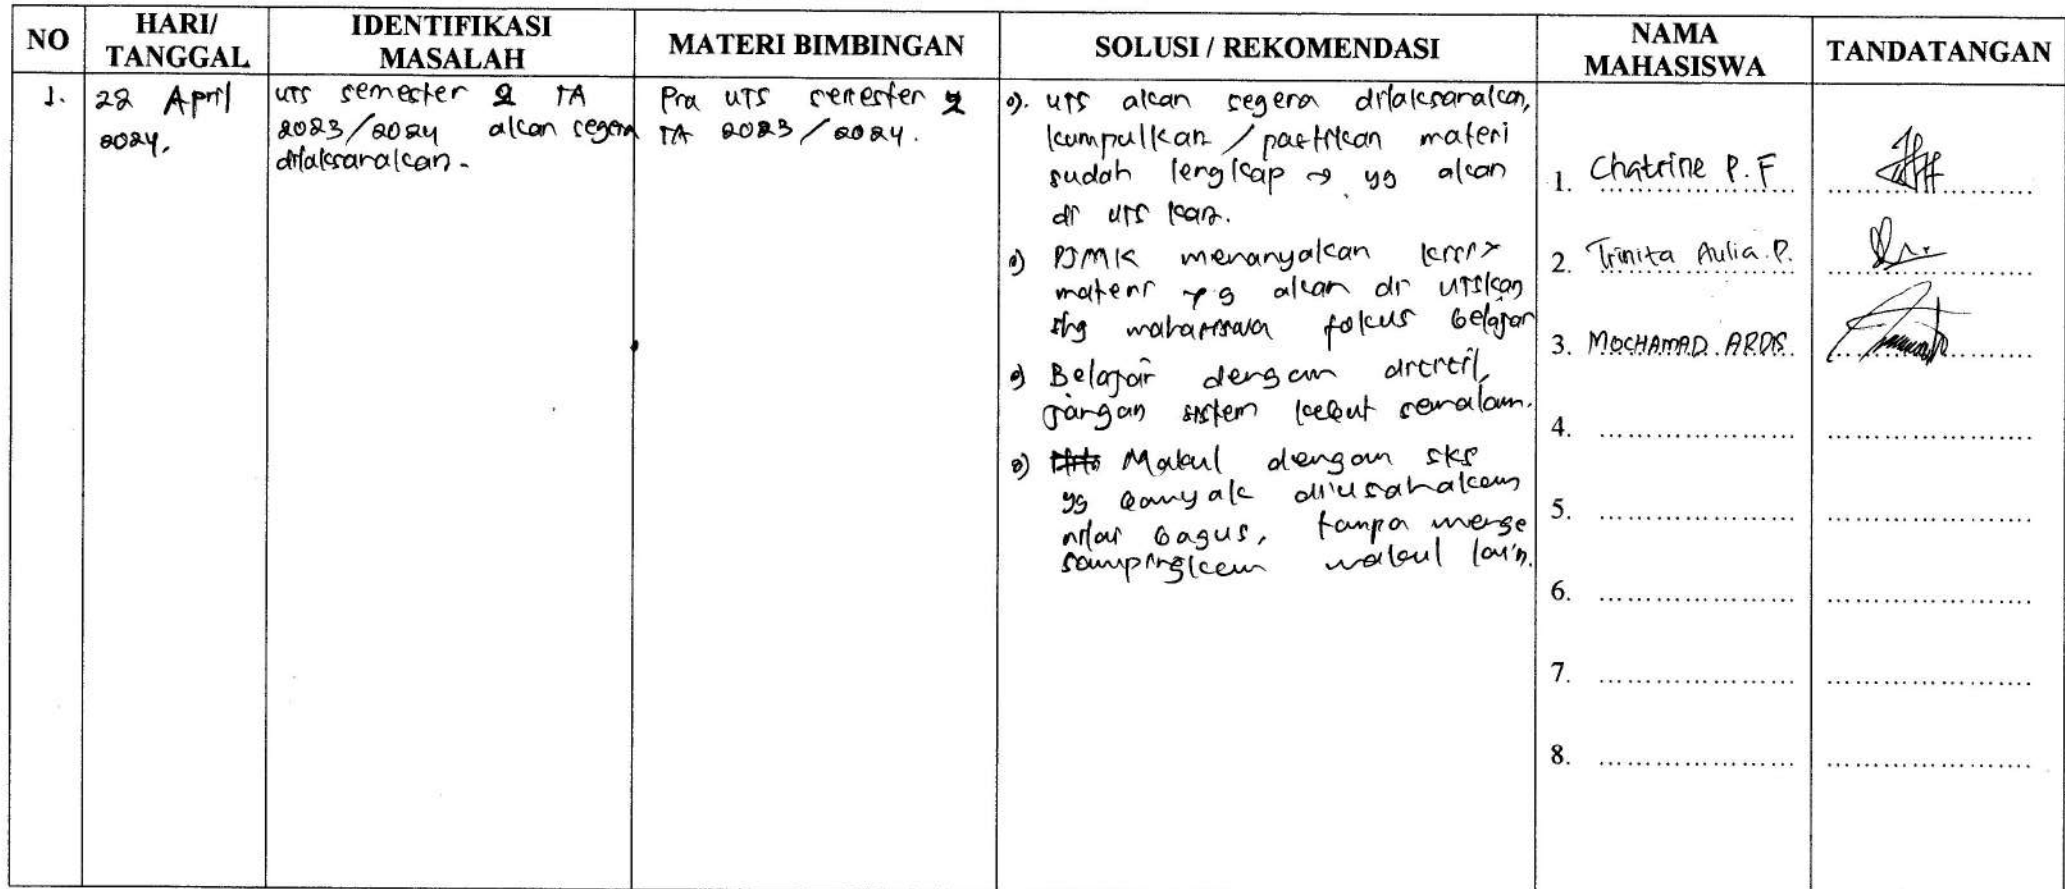 NO
HARI/
TANGGAL
IDENTIFIKASI
MASALAH
MATERI BIMBINGAN
SOLUSI / REKOMENDASI
NAMA
MAHASISWA
TANDATANGAN
1.
22 April
2024.
UTS semester 2 TA
2023/2024 akan segera
dilaksanakan.
Pra UTS semester 2
TA 2023/2024.
o). UTS akan segera dilaksanakan,
kumpulkan / pastikan materi
sudah lengkap → yg akan
di UTS kan.
o) PJMK menanyakan
materi yg akan di UTSkan
shg mahasiswa fokus belajar
o) Belajar dengan dicicil,
jangan sistem kebut semalam.
o) Makul dengan sks
yg banyak diusahakan
nilai bagus, tanpa menge
sampingkan makul lain.
1. Chatrine P.F
2. Trinita Aulia.P.
3. MOCHAMAD ARDS
4.
5.
6.
7.
8.